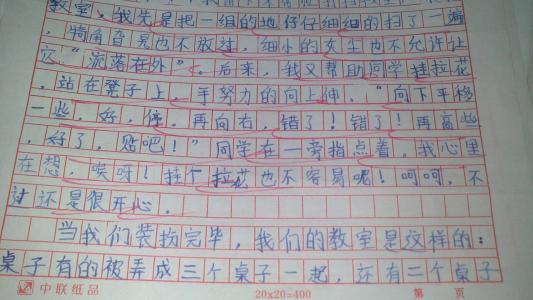 教室。我先是把一组的地仔仔细细的扫了一遍
，犄角旮旯也不放过，细小的灰尘也不允许让
它“流落在外”。后来，我又帮助同学挂拉花
，站在凳子上，手努力的向上伸，“向下平移
一些，好，停，再向右，错了！错了！再高些
，好了，贴吧！”同学在一旁指点着，我心里
在想，唉呀！挂个拉花也不容易呢！呵呵，不
过还是很开心。
当我们装扮完毕，我们的教室是这样的：
桌子有的被弄成三个桌子一起，还有二个桌子
中联纸品 20x20=400 第 页